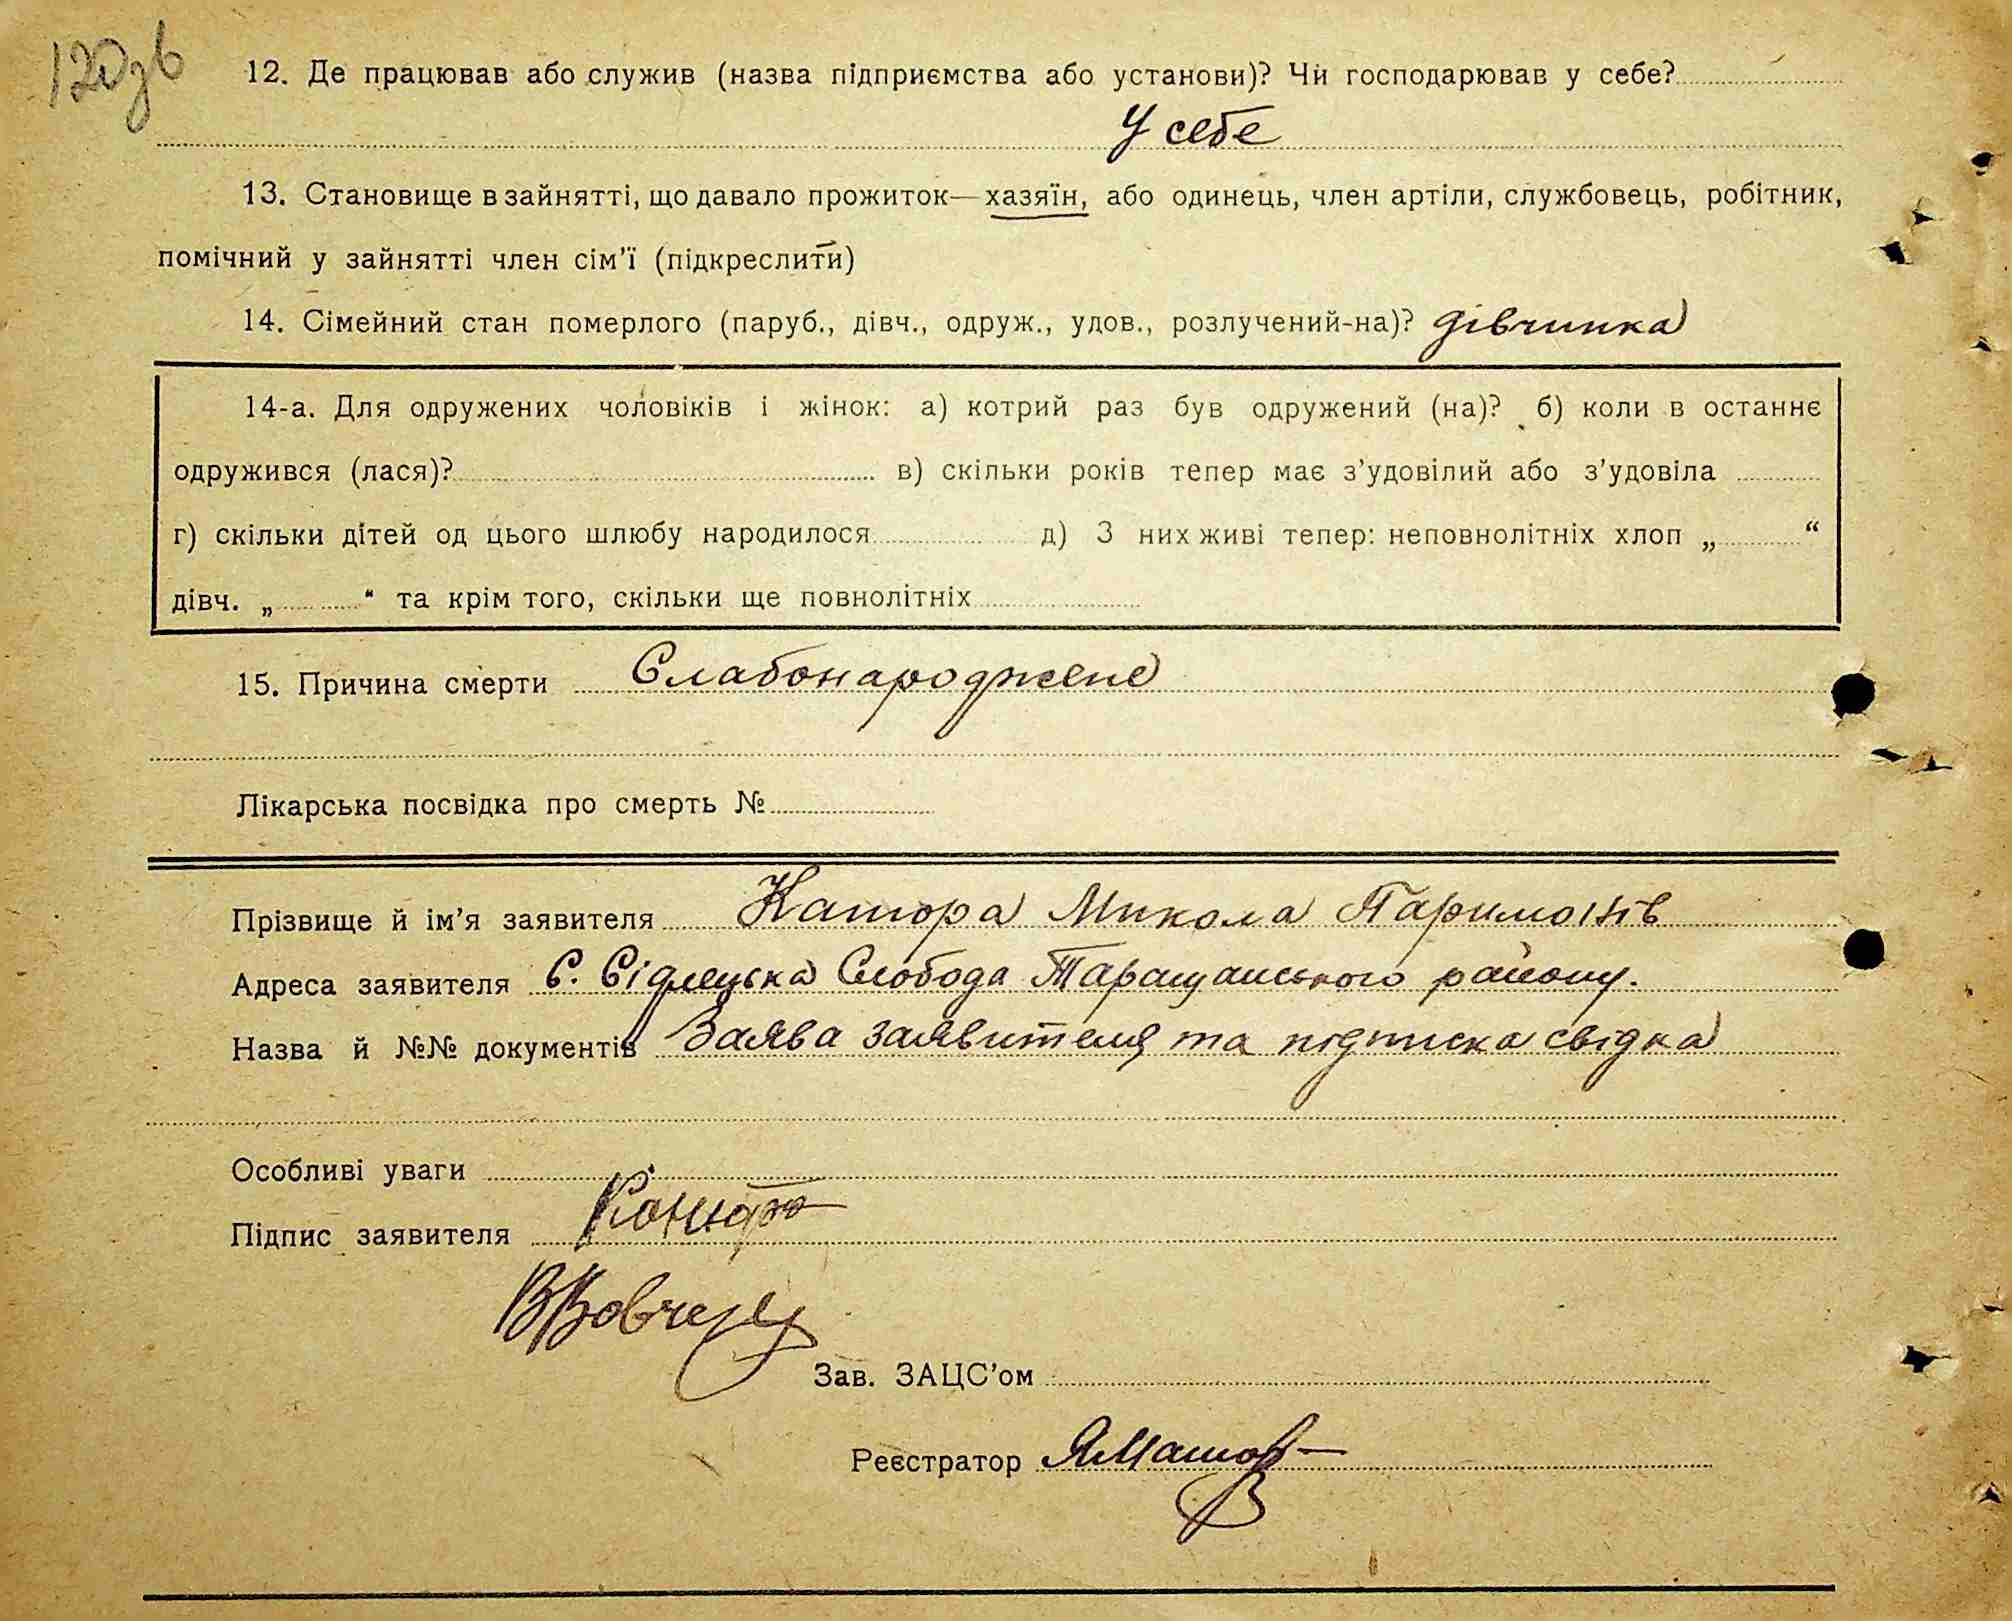 120зв
12. Де працював або служив (назва підприємства або установи)? Чи господарював у себе?
У себе
13. Становище в зайнятті, що давало прожиток—хазяїн, або одинець, член артіли, службовець, робітник,
помічний у зайнятті член сім'ї (підкреслити)
14. Сімейний стан померлого (паруб., дівч., одруж., удов., розлучений-на)? дівчинка
14-а. Для одружених чоловіків і жінок: а) котрий раз був одружений (на)? б) коли в останнє
одружився (лася)? в) скільки років тепер має з'удовілий або з'удовіла
г) скільки дітей од цього шлюбу народилося д) З них живі тепер: неповнолітніх хлоп „ “
дівч. „ “ та крім того, скільки ще повнолітніх
15. Причина смерти Слабонароджене
Лікарська посвідка про смерть №
Прізвище й ім'я заявителя Микола
Адреса заявителя С. Слобода Таращанського району.
Назва й №№ документів Заява заявителя та підписка свідка
Особливі уваги
Підпис заявителя
Зав. ЗАЦС'ом
Реєстратор